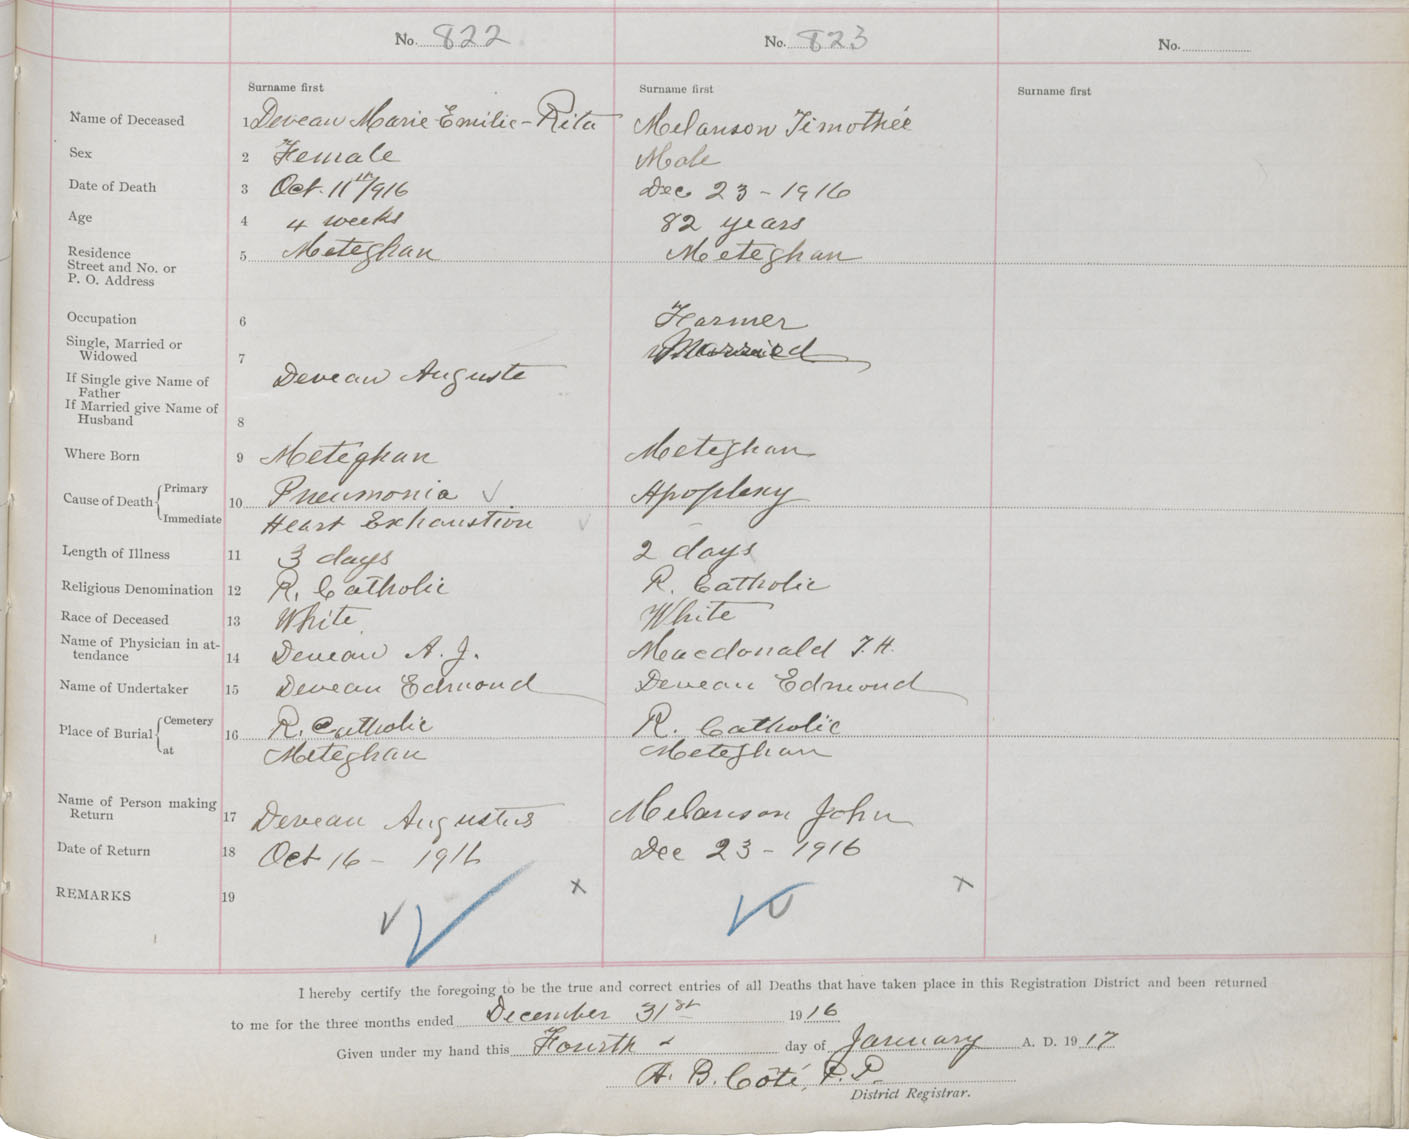 No. 822 No. 823 No.
Surname first Surname first Surname first
Name of Deceased 1 Deveau Marie Emilie-Rita Melanson Timothée
Sex 2 Female Male
Date of Death 3 Oct. 11th/916 Dec 23-1916
Age 4 4 weeks 82 years
Residence
Street and No. or
P. O. Address 5 Meteghan Meteghan
Occupation 6 Farmer
Single, Married or
Widowed 7 Married
If Single give Name of
Father Deveau Auguste
If Married give Name of
Husband 8
Where Born 9 Meteghan Meteghan
Cause of Death Primary 10 Pneumonia Apoplexy
Immediate Heart Exhaustion
Length of Illness 11 3 days 2 days
Religious Denomination 12 R. Catholic R. Catholic
Race of Deceased 13 White White
Name of Physician in at-
tendance 14 Deveau A. J. Macdonald T. H.
Name of Undertaker 15 Deveau Edmond Deveau Edmond
Place of Burial Cemetery 16 R. Catholic R. Catholic
at Meteghan Meteghan
Name of Person making
Return 17 Deveau Augustus Melanson John
Date of Return 18 Oct 16- 1916 Dec 23-1916
REMARKS 19
I hereby certify the foregoing to be the true and correct entries of all Deaths that have taken place in this Registration District and been returned
to me for the three months ended December 31st 1916
Given under my hand this Fourth day of January A. D. 1917
A. B. Côté, P.P.
District Registrar.